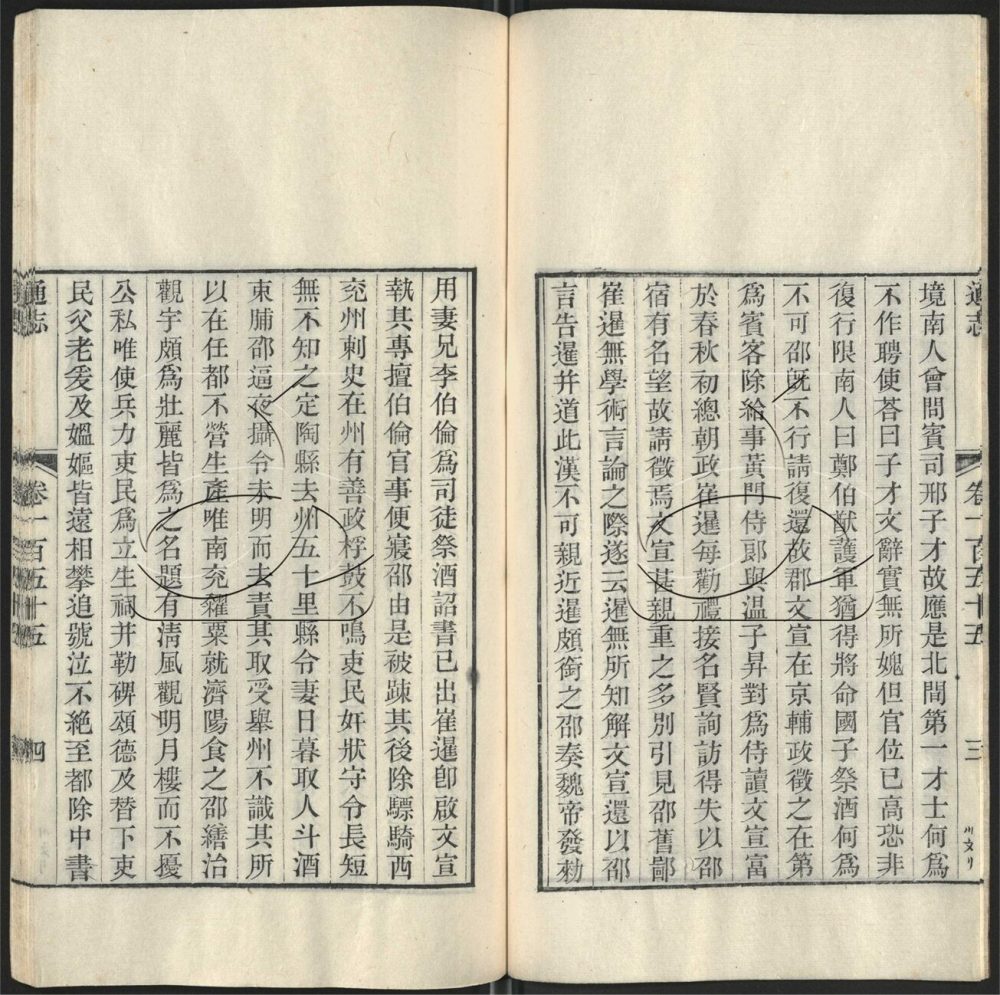 通志
卷一百五十五
三
境南人曾問賓司邢子才故應是北間第一才士何爲
不作聘使荅曰子才文辭實無所媿但官位已高恐非
復行限南人曰鄭伯猷護軍猶得將命國子祭酒何爲
不可邵旣不行請復還故郡文宣在京輔政徵之在第
爲賓客除給事黃門侍郞與温子昇對爲侍讀文宣富
於春秋初總朝政崔暹每勸禮接名賢詢訪得失以邵
宿有名望故請徵焉文宣甚親重之多別引見邵舊鄙
崔暹無學術言論之際遂云暹無所知解文宣還以邵
言告暹幷道此漢不可親近暹頗銜之邵奏魏帝發勑
用妻兄李伯倫爲司徒祭酒詔書已出崔暹卽啟文宣
執其專擅伯倫官事便寢邵由是被踈其後除驃騎西
兖州刺史在州有善政桴鼓不鳴吏民奸狀守令長短
無不知之定陶縣去州五十里縣令妻日暮取人斗酒
束脯邵逼夜攝令未明而去責其取受舉州不識其所
以在任都不營生產唯南兖糴粟就濟陽食之邵繕治
觀宇頗爲壯麗皆爲之名題有清風觀明月樓而不擾
公私唯使兵力吏民爲立生祠幷勒碑頌德及替下吏
民父老爰及媼嫗皆遠相攀追號泣不絕至都除中書
通志
卷一百五十五
四